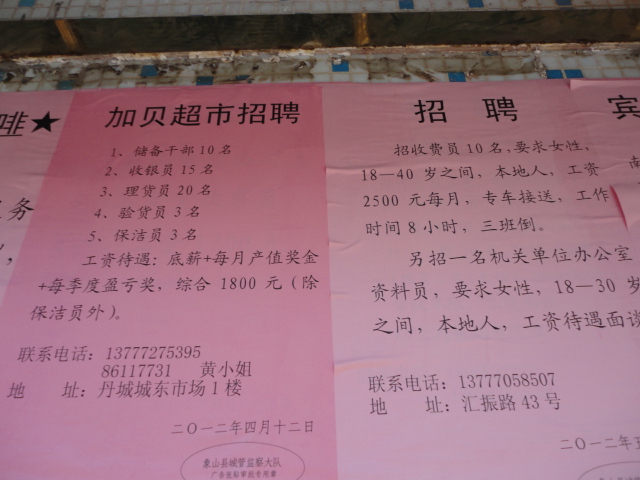 啡★
务
加贝超市招聘
1、储备干部10名
2、收银员15名
3、理货员20名
4、验货员3名
5、保洁员3名
工资待遇：底薪+每月产值奖金
+每季度盈亏奖，综合1800元（除
保洁员外）。
联系电话：13777275395
86117731 黄小姐
地 址：丹城城东市场1楼
二〇一二年四月十二日
象山县城管监察大队
广告张贴审批专用章
招 聘
招收费员10名，要求女性，
18—40岁之间，本地人，工资
2500元每月，专车接送，工作
时间8小时，三班倒。
另招一名机关单位办公室
资料员，要求女性，18—30岁
之间，本地人，工资待遇面谈
联系电话：13777058507
地 址：汇振路43号
二〇一二年五
宾